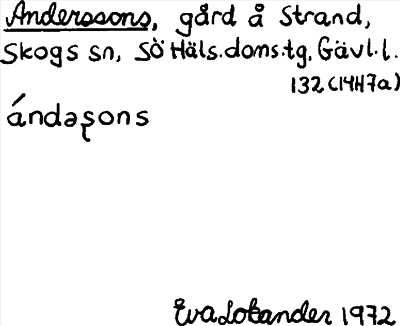 Anderssons, gård å Strand,
Skogs sn, SÖ Häls. doms.tg, Gävl. l.
132 (14H7a)
ándəʂons
Eva Lobander 1972